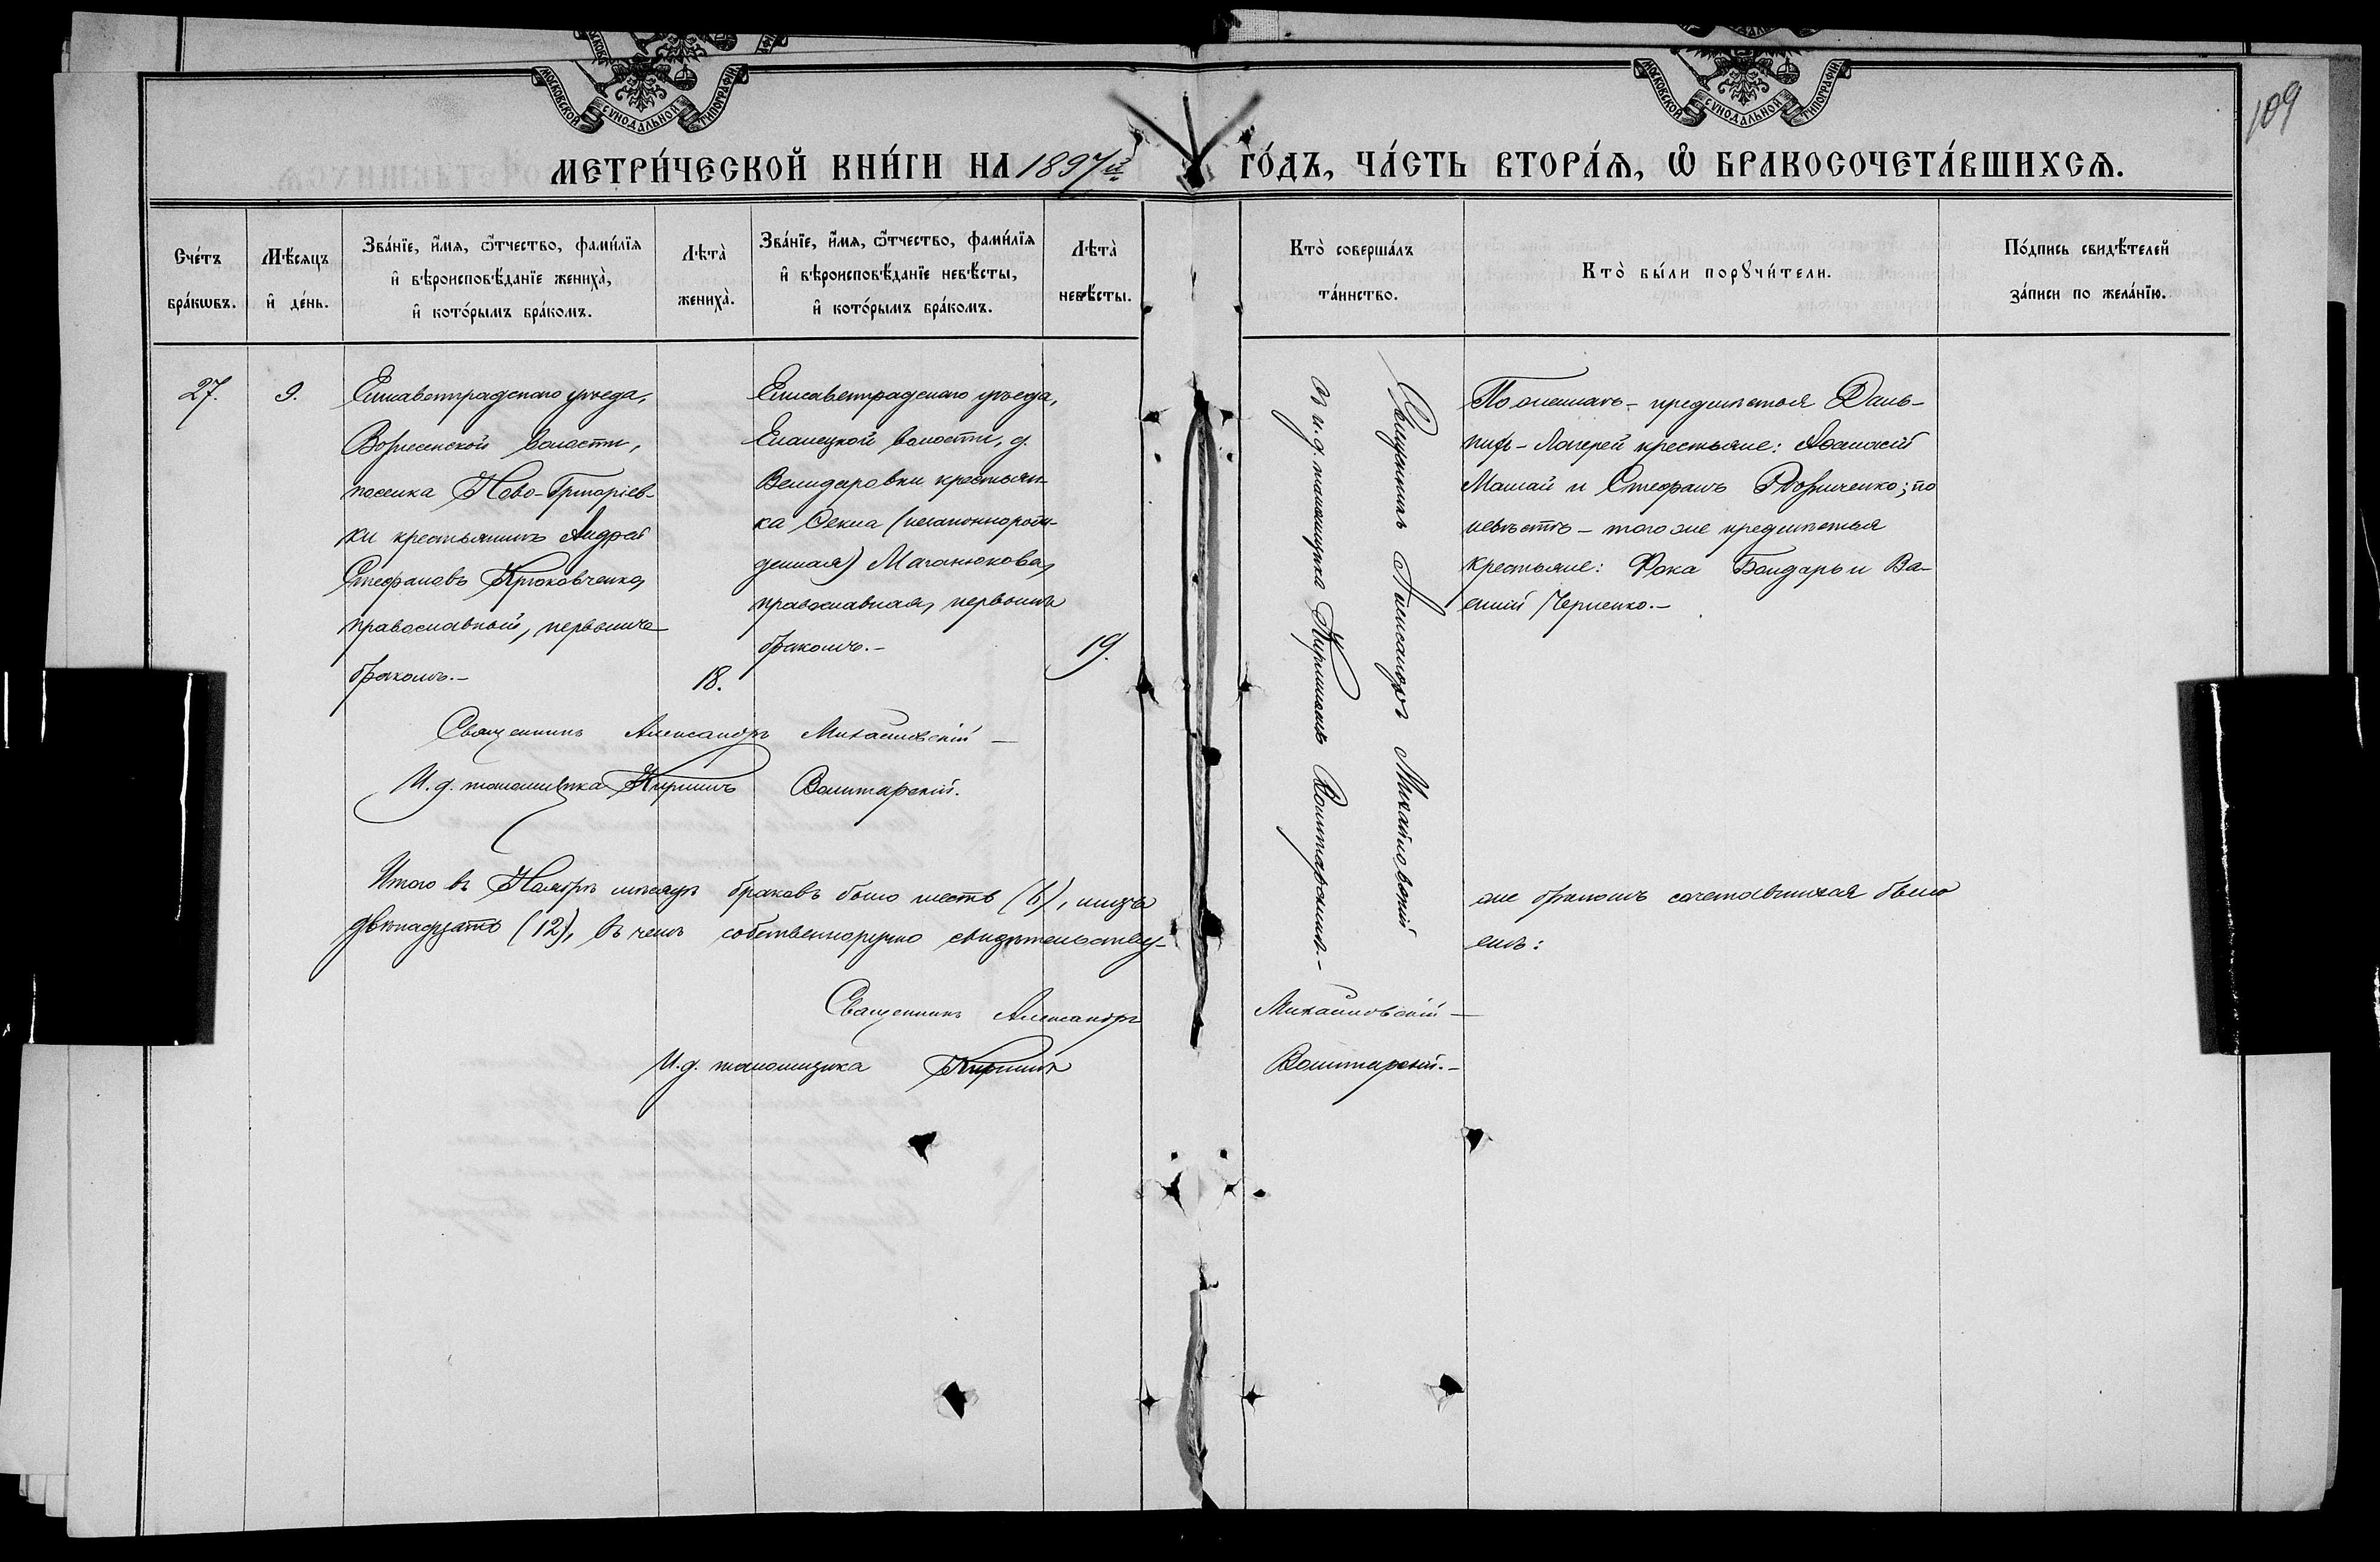 МОСКОВСКОЙ СѴНОДАЛЬНОЙ ТИПОГРАФІИ
МОСКОВСКОЙ СѴНОДАЛЬНОЙ ТИПОГРАФІИ
109
МЕТРИ́ЧЕСКОЙ КНИ́ГИ НА 1897й ГО́ДЪ, ЧА́СТЬ ВТОРА́Ѧ, Ѽ БРАКОСОЧЕТА́ВШИХСѦ.
Сче́тъ
бра́кѡвъ.
Мѣ́сяцъ
и҆ де́нь.
Зва́нїе, и҆́мя, ѻ҆́тчество, фами́лїя
и҆ вѣроисповѣ́данїе жениха̀,
и҆ кото́рымъ бра́комъ.
Лѣта̀
жениха̀.
Зва́нїе, и҆́мя, ѻ҆́тчество, фами́лїя
и҆ вѣроисповѣ́данїе невѣ́сты,
и҆ кото́рымъ бра́комъ.
Лѣта̀
невѣ́сты.
Кто̀ соверша́лъ
та́инство.
Кто̀ бы́ли порꙋчи́тели.
По́дпись свидѣ́телей
за́писи по жела́нїю.
27.
9.
Елисаветградскаго уѣзда,
Вознесенской волости,
поселка Ново-Григоріев-
ки крестьянинъ Андрей
Стефановъ Крюковченко,
православный, первымъ
бракомъ.-
18.
Елисаветградскаго уѣзда,
Еланецкой волости, д.
Велидаровки крестьян-
ка Фекла (незаконнорож-
денная) Маганюкова,
православная, первымъ
бракомъ.-
19.
Священникъ Александръ Михайловскій
съ и. д. псаломщика Кириломъ Волтарскимъ.-
По женихѣ - предмѣстья
крестьяне: Афанасій
Малай и Стефанъ ; по
невѣстѣ - того же предмѣстья
крестьяне: Фока Бондарь и Ва-
силій Черненко.-
Священникъ Александръ Михайловскій
И. д. псаломщика Кириллъ Волтарскій.
Итого въ Ноябрѣ мѣсяцѣ браковъ было шесть (6), лицъ же бракомъ сочетавшихся было
двѣнадцать (12), въ чемъ собственноручно свидѣтельству-
емъ:
Священникъ Александръ Михайловскій
И. д. псаломщика Кириллъ Волтарскій.-